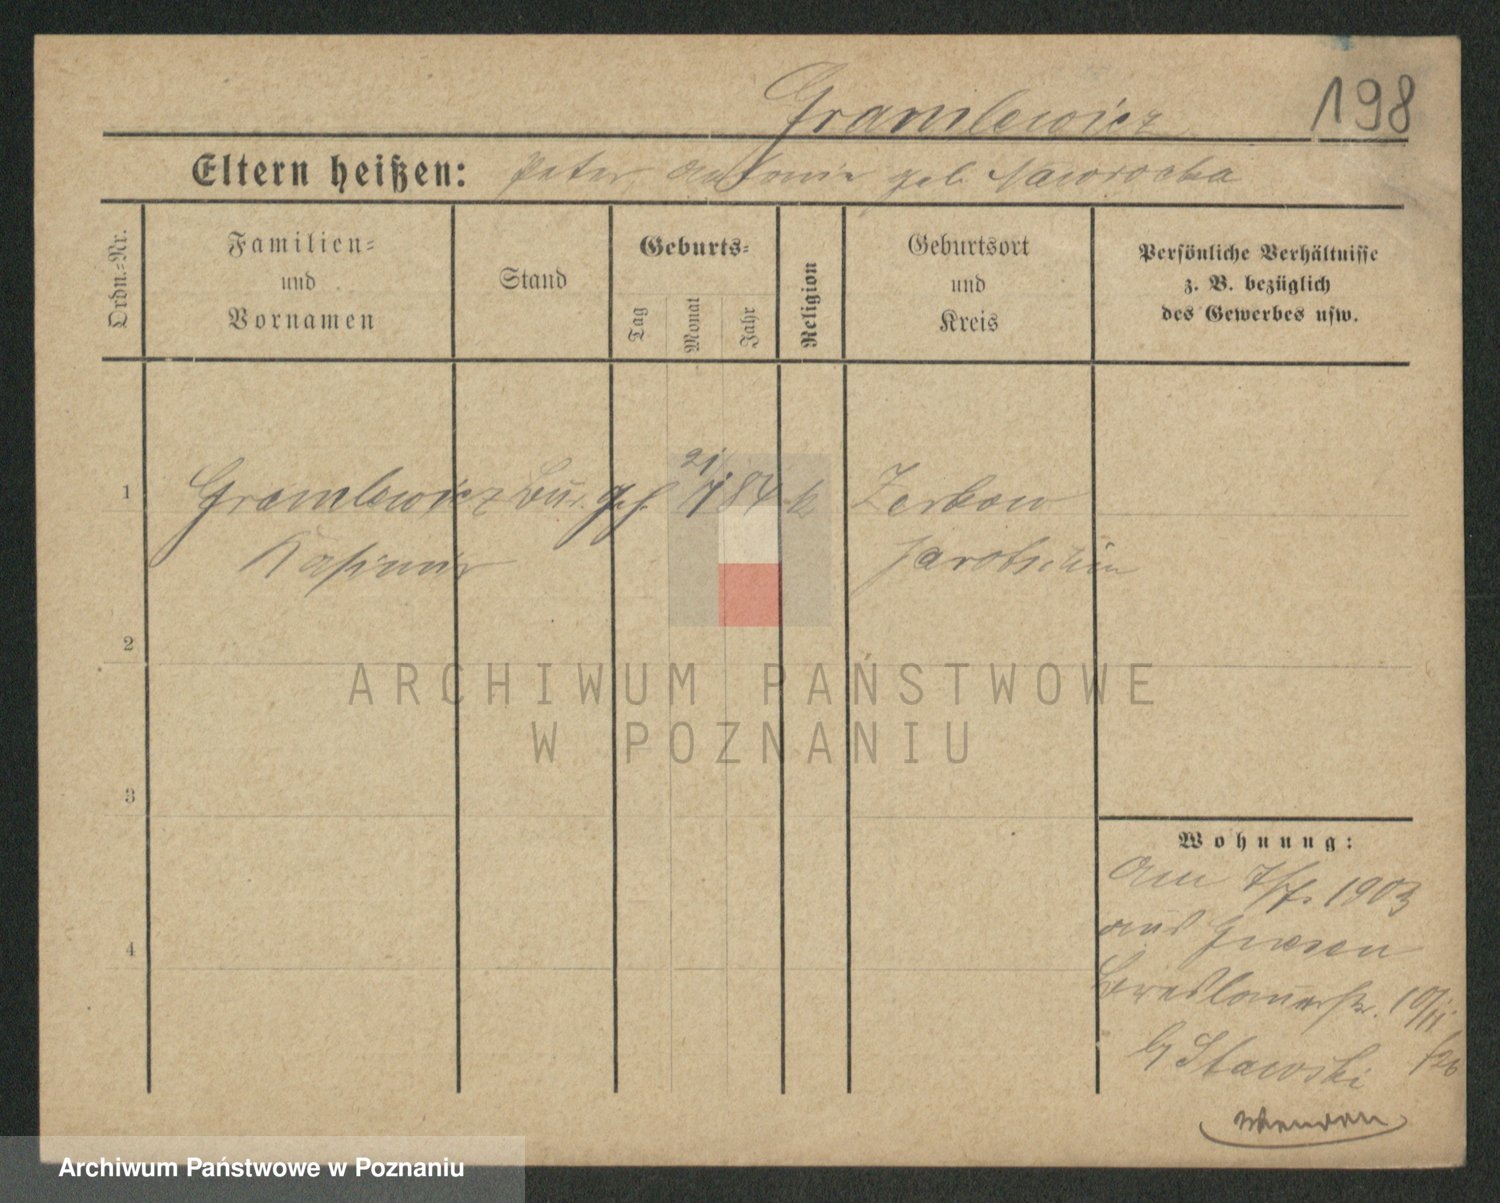 Gramlewicz 198
Eltern heißen: Peter, Antonie geb. Naworocka
Ordn.-Nr.
Familien-
und
Vornamen
Stand
Geburts-
Tag
Monat
Jahr
Religion
Geburtsort
und
Kreis
Persönliche Verhältnisse
z. B. bezüglich
des Gewerbes usw.
1 Gramlewicz geh. 21/ 84 k Zerkow
Kasimir Jarotschin
2
ARCHIWUM PAŃSTWOWE
W POZNANIU
3
Wohnung:
Am 1903
4
aus Gnesen
Breslauerstr. 10/II
b/ Stawski
Archiwum Państwowe w Poznaniu